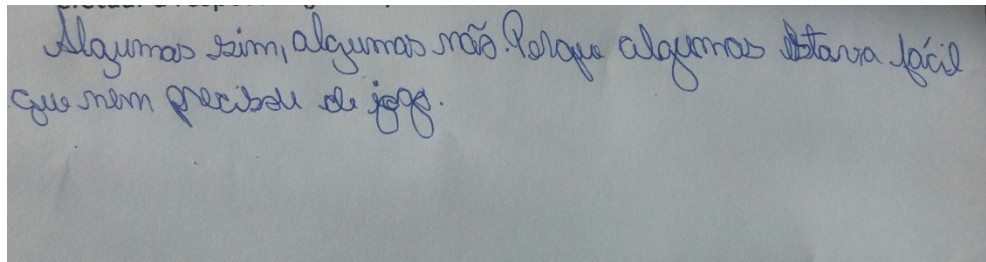 Algumas sim, algumas não. Porque algumas estava fácil
que nem precisou de jogo.